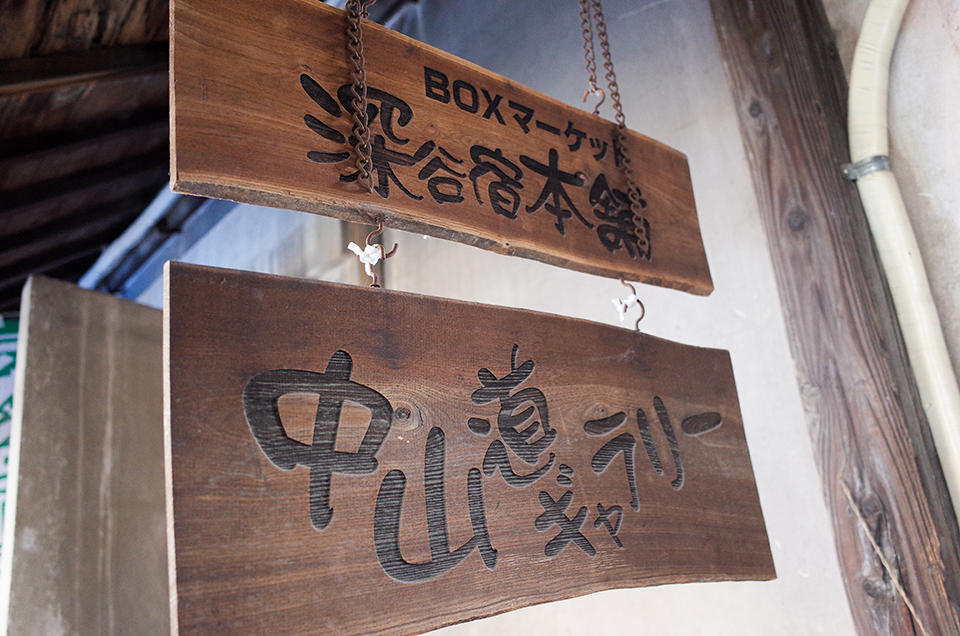 BOXマーケット
深谷宿本舗
中山道ギャラリー